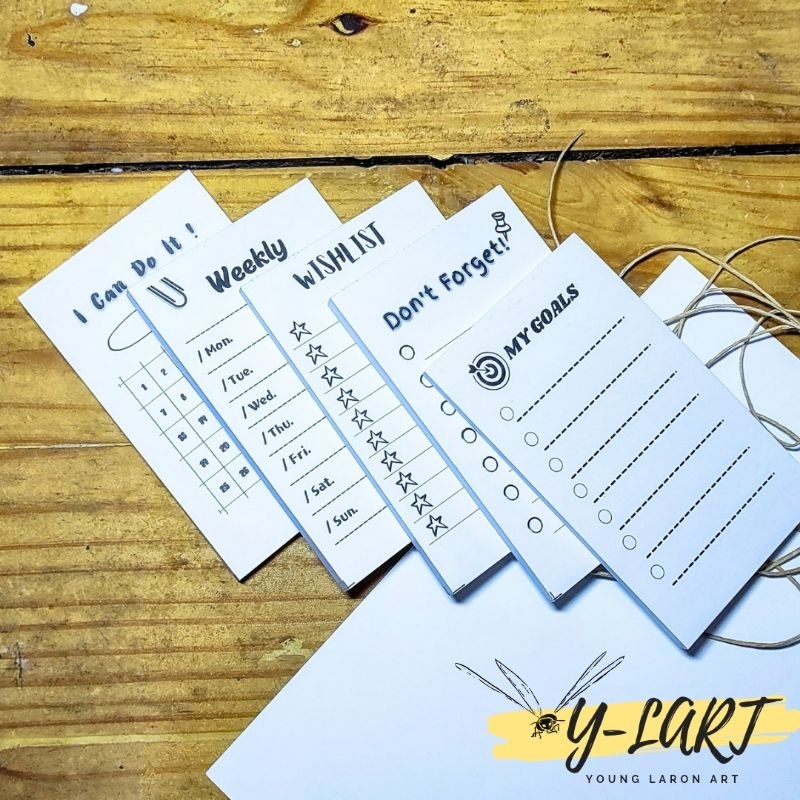 I Can Do It !
1 2
7 8
13 14
19 20
25 26
Weekly
/ Mon.
/ Tue.
/ Wed.
/ Thu.
/ Fri.
/ Sat.
/ Sun.
WISHLIST
Don't Forget!!
MY GOALS
Y-LART
YOUNG LARON ART